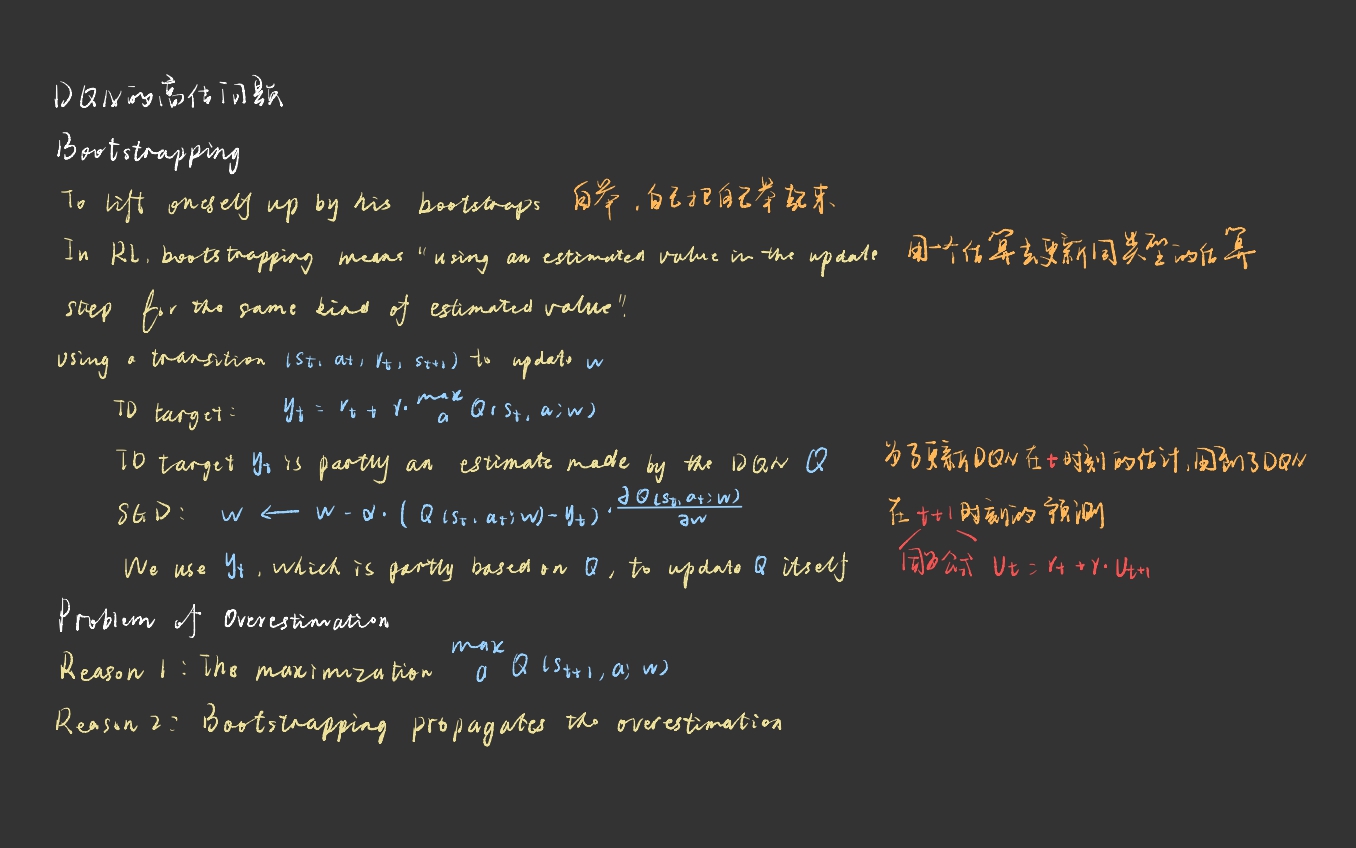 DQN的高估问题
Bootstrapping
To lift oneself up by his bootstraps 自举,自己把自己举起来
In RL, bootstrapping means "using an estimated value in the update 用一个估算去更新同类型的估算
step for the same kind of estimated value".
using a transition (s_t, a_t, r_t, s_{t+1}) to update w
TD target: y_t = r_t + γ · max_a Q(s_t, a; w)
TD target y_t is partly an estimate made by the DQN Q 为了更新DQN在t时刻的估计,用到了DQN
SGD: w ← w - α · (Q(s_t, a_t; w) - y_t) · ∂Q(s_t, a_t; w)/∂w 在t+1时刻的预测
We use y_t, which is partly based on Q, to update Q itself 因为公式 U_t = r_t + γ · U_{t+1}
Problem of Overestimation
Reason 1: The maximization max_a Q(s_{t+1}, a; w)
Reason 2: Bootstrapping propagates the overestimation